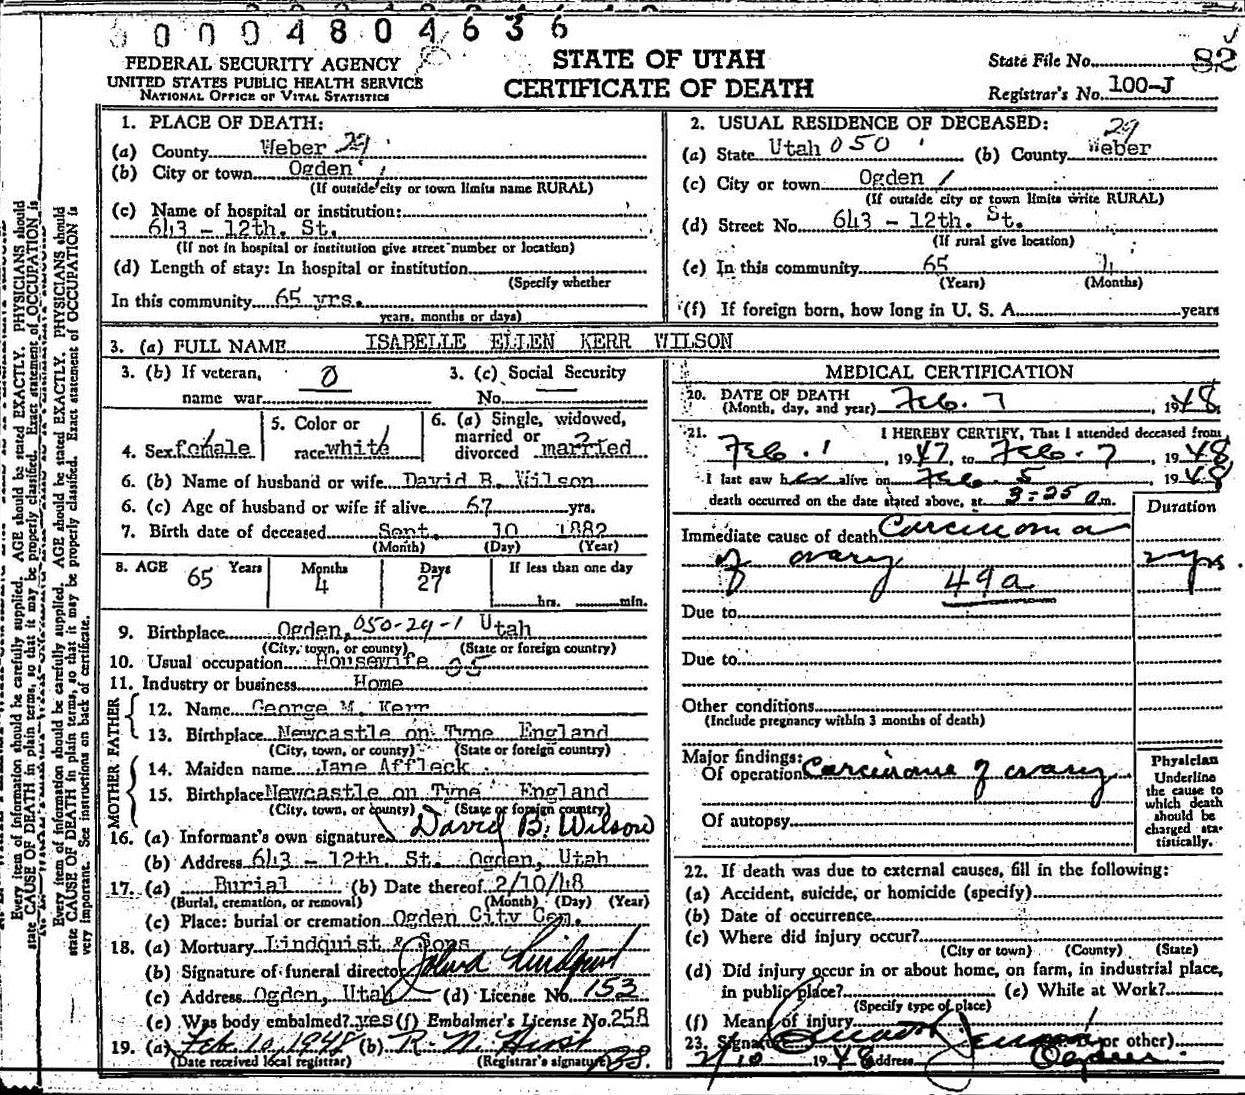 00004804636
FEDERAL SECURITY AGENCY
UNITED STATES PUBLIC HEALTH SERVICE
NATIONAL OFFICE OF VITAL STATISTICS
STATE OF UTAH
CERTIFICATE OF DEATH
State File No. 82
Registrar's No. 100-J
1. PLACE OF DEATH:
(a) County Weber 29
(b) City or town Ogden
(If outside city or town limits name RURAL)
(c) Name of hospital or institution:
643 - 12th. St.
(If not in hospital or institution give street number or location)
(d) Length of stay: In hospital or institution
(Specify whether
In this community 65 yrs.
years, months or days)
2. USUAL RESIDENCE OF DECEASED:
29
(a) State Utah 050 (b) County Weber
(c) City or town Ogden /
(If outside city or town limits write RURAL)
(d) Street No. 643 - 12th. St.
(If rural give location)
(e) In this community 65
(Years) (Months)
(f) If foreign born, how long in U. S. A. years
3. (a) FULL NAME ISABELLE ELLEN KERR WILSON
3. (b) If veteran, name war 0
3. (c) Social Security No.
4. Sex female
5. Color or race white
6. (a) Single, widowed, married or divorced married
6. (b) Name of husband or wife David B. Wilson
6. (c) Age of husband or wife if alive 67 yrs.
7. Birth date of deceased Sept. 10 1882
(Month) (Day) (Year)
8. AGE 65 Years Months 4 Days 27 If less than one day
hrs. min.
9. Birthplace Ogden, 050-29-1 Utah
(City, town, or county) (State or foreign country)
10. Usual occupation Housewife 95
11. Industry or business Home
FATHER
12. Name George M. Kerr
13. Birthplace Newcastle on Tyne England
(City, town, or county) (State or foreign country)
MOTHER
14. Maiden name Jane Affleck
15. Birthplace Newcastle on Tyne England
(City, town, or county) (State or foreign country)
16. (a) Informant's own signature David B. Wilson
(b) Address 643 - 12th. St. Ogden, Utah
17. (a) Burial (b) Date thereof 2/10/48
(Burial, cremation, or removal) (Month) (Day) (Year)
(c) Place: burial or cremation Ogden City Cem.
18. (a) Mortuary Lindquist & Sons
(b) Signature of funeral director Lindquist
(c) Address Ogden, Utah (d) License No. 153
(e) Was body embalmed? yes (f) Embalmer's License No. 258
19. (a) Feb 10, 1948 (b) R. N. Hirst
(Date received local registrar) (Registrar's signature)
MEDICAL CERTIFICATION
20. DATE OF DEATH
(Month, day, and year) Feb. 7, 1948
21. I HEREBY CERTIFY, That I attended deceased from
Feb. 1, 1947, to Feb. 7, 1948
I last saw her alive on Feb 5, 1948
death occurred on the date stated above, at 3:25 a.m.
Duration
Immediate cause of death Carcinoma
of ovary 2 yrs.
49a
Due to
Due to
Other conditions
(Include pregnancy within 3 months of death)
Major findings:
Of operation Carcinoma of ovary
Of autopsy
Physician
Underline
the cause to
which death
should be
charged sta-
tistically.
22. If death was due to external causes, fill in the following:
(a) Accident, suicide, or homicide (specify)
(b) Date of occurrence
(c) Where did injury occur?
(City or town) (County) (State)
(d) Did injury occur in or about home, on farm, in industrial place,
in public place? (e) While at Work?
(Specify type of place)
(f) Means of injury
23. Signature or other)
2/10 1948 Address Ogden
Every item of information should be carefully supplied. AGE should be stated EXACTLY. PHYSICIANS should
state CAUSE OF DEATH in plain terms, so that it may be properly classified. Exact statement of OCCUPATION is
Every item of information should be carefully supplied. AGE should be stated EXACTLY. PHYSICIANS should
state CAUSE OF DEATH in plain terms, so that it may be properly classified. Exact statement of OCCUPATION is
very important. See instructions on back of certificate.